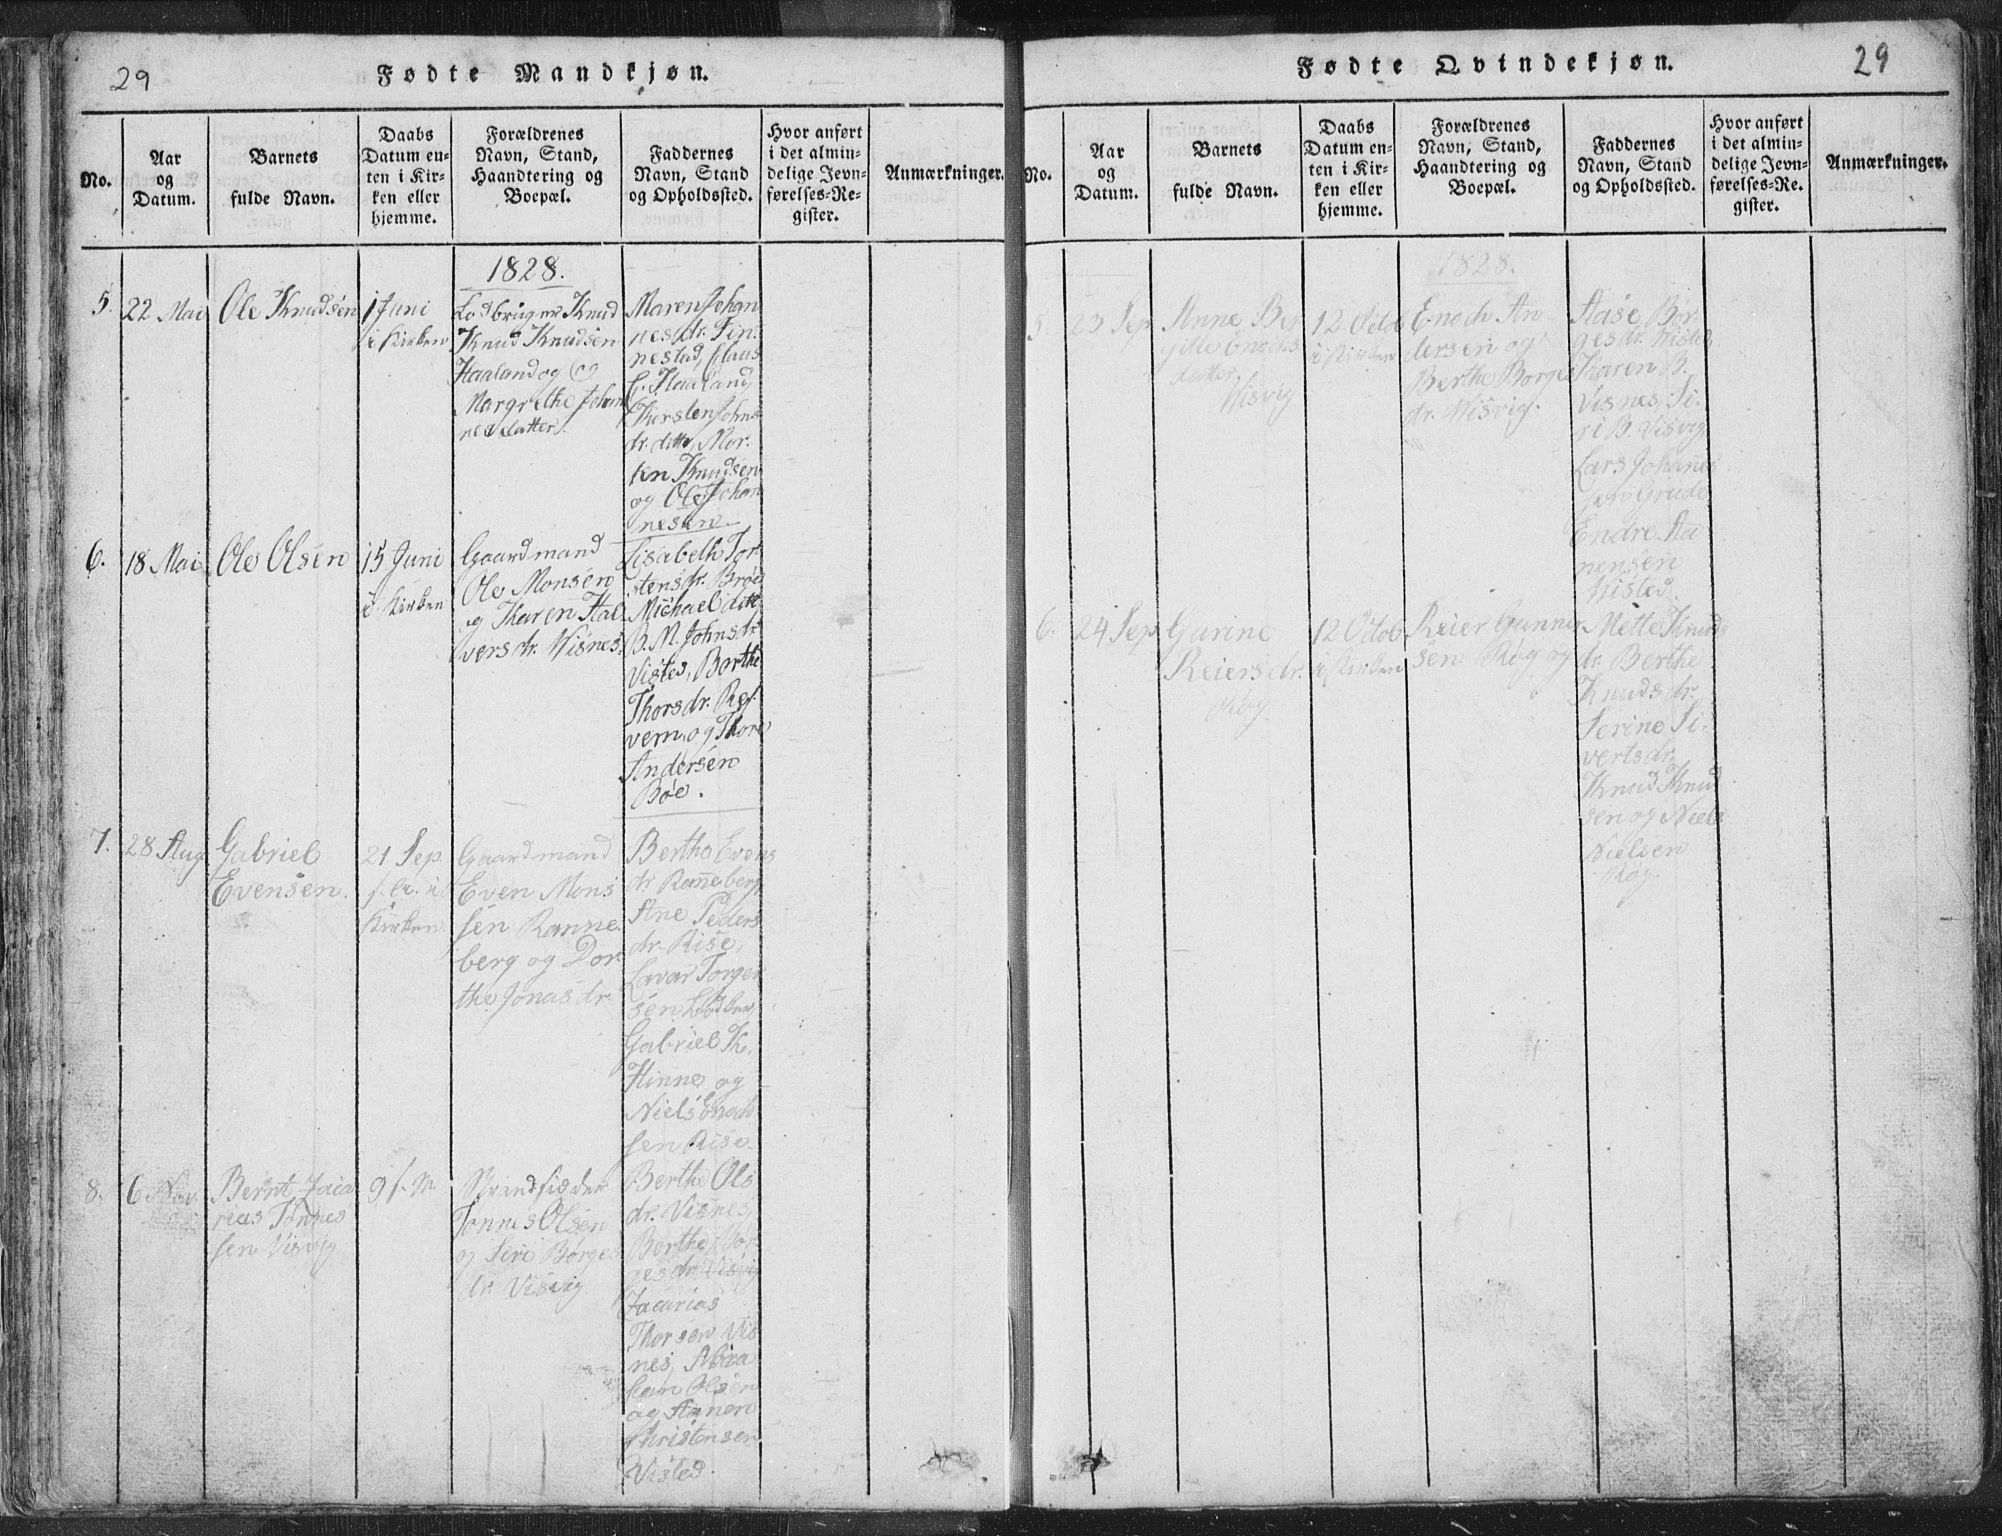 29
Fødte Mandkjøn.
No.
Aar
og
Datum.
Barnets
fulde Navn.
Daabs
Datum en-
ten i Kir-
ken eller
hjemme.
Forældrenes
Navn, Stand,
Haandtering og
Boepæl.
Faddernes
Navn, Stand
og Opholdssted.
Hvor anført
i det almin-
delige Jevn-
førelses-Re-
gister.
Anmærkninger.
1828.
5.
22 Mai
Ole Knudsen
1 Juni
i Kirken
Knud Knudsen
Haaland og
Margrethe Johan
nesdatter.
Maren Johan
nesdr. Fin-
nestad, Claus
Haaland,
Thorsten Johns
dr. ditto, Mor-
ten Knudsen
og Ole Johan
nesen.
6.
18 Mai
Ole Olsen
15 Juni
i Kirken
Gaardmand
Ole Monsen
og Karen Hal
versdr. Visnes.
Lisabeth Tor-
stensdr. Bröe
Michael ditto
B. M. Johnsdr.
Visted, Berthe
Thorsdr. Ref-
vem, og Thore
Andersen
Bøe.
7.
28 Aug
Gabriel
Evensen.
21 Sep.
Kirken
Gaardmand
Even Mons
sen Ranne-
berg og Dor-
the Jonasdr.
Berthe Evens
dr. Ranneberg,
Ane Peders
dr. Rise,
Torger
sen
Gabriel K.
Hinne og
Niels Enoch
sen Rise.
8.
6 Nov.
Bernt Zaca
rias Tønnes
sen Visvig
9 f. M
Strandsidder
Tønnes Olsen
og Siri Børges
dr. Visvig
Berthe Ols
dr. Visnes,
Berthe Bør-
gesdr. Visvig
Zacarias
Thorsen Vis
nes, Abra
ham Olsen
og Aanen
Christensen
Visted.
Fødte Qvindekjøn.
29
No.
Aar
og
Datum.
Barnets
fulde Navn.
Daabs
Datum en-
ten i Kir-
ken eller
hjemme.
Forældrenes
Navn, Stand,
Haandtering og
Boepæl.
Faddernes
Navn, Stand
og Opholdssted.
Hvor anført
i det almin-
delige Jevn-
førelses-Re-
gister.
Anmærkninger.
1828.
5.
23 Sep
Anne Ber
gitte Enochs
datter
Visvig
12 Octob
i Kirken
Enoch An
dersen og
Berthe Børges
dr. Visvig.
Aase Bør
gesdr. Visted,
Karen B.
Visnes, Si-
ri B. Visvig
Lars Johanne
sen Grude
Endre Aa
nensen
Visted.
6.
24 Sep.
Garine
Reiersdr.
Røg
12 Octob
i Kirken
Reier Gunner
sen Røg og
Mette Knuds
dr. Berthe
Knudsdr.
Serine Si-
vertsdr.
Knud Knud
sen og Niels
Nielsen
Røg.